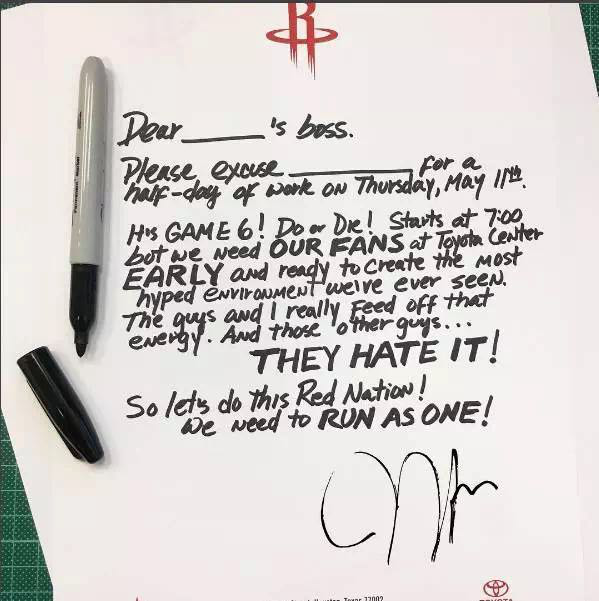 R
Dear ______'s boss.
Please excuse ____________ for a
half-day of work on Thursday, May 11th.
It's GAME 6! Do or Die! Starts at 7:00
but we need OUR FANS at Toyota Center
EARLY and ready to create the most
hyped environment we've ever seen.
The guys and I really feed off that
energy. And those other guys...
THEY HATE IT!
So let's do this Red Nation!
We need to RUN AS ONE!
Texas 77002
TOYOTA